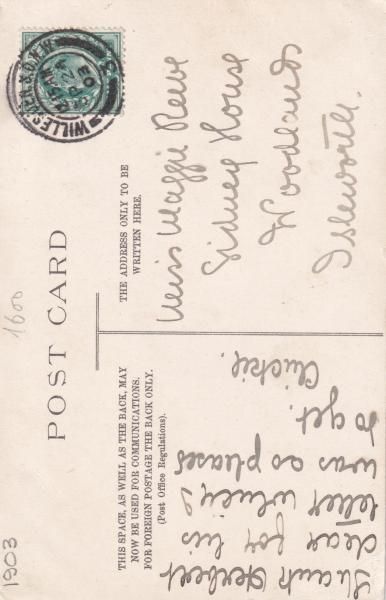 POST CARD
THIS SPACE, AS WELL AS THE BACK, MAY
NOW BE USED FOR COMMUNICATIONS.
FOR FOREIGN POSTAGE THE BACK ONLY.
(Post Office Regulations).
THE ADDRESS ONLY TO BE
WRITTEN HERE.
Thank Herbert
dear for his
letter which I
was so pleased
to get.
Chickie.
Miss Maggie Reeve
Sidney House
Woodlands
Isleworth.
WILLESDEN
03
1600
1903